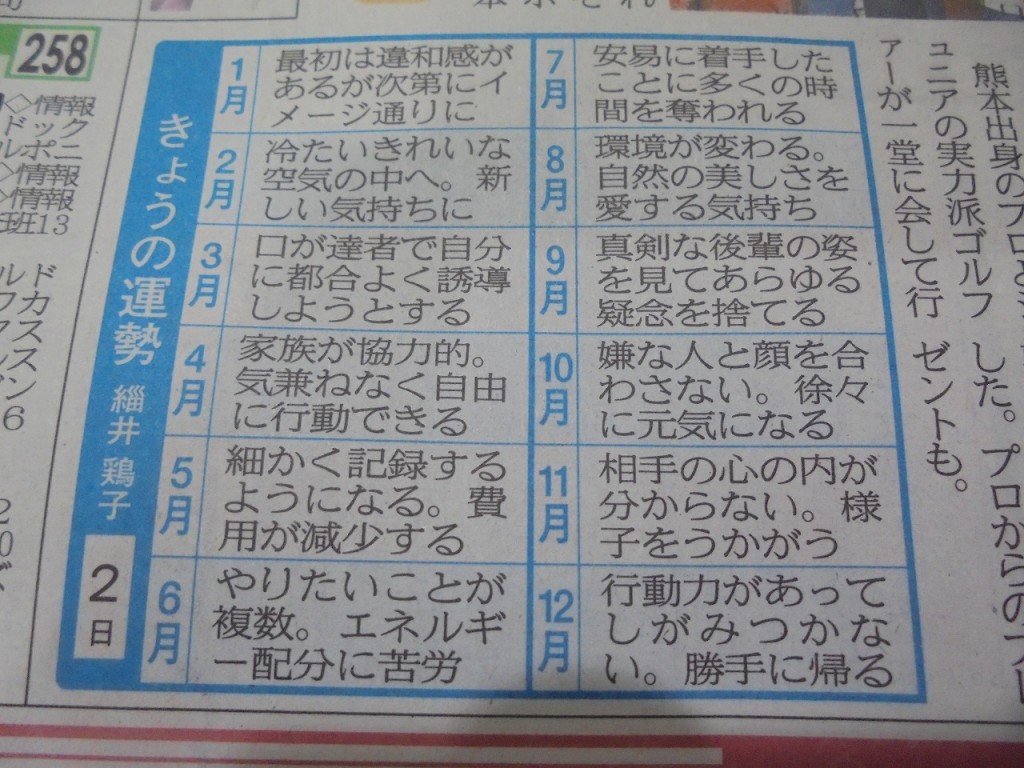 きょうの運勢
緇井 鶏子
2日
1月
最初は違和感が
あるが次第にイ
メージ通りに
2月
冷たいきれいな
空気の中へ。新
しい気持ちに
3月
口が達者で自分
に都合よく誘導
しようとする
4月
家族が協力的。
気兼ねなく自由
に行動できる
5月
細かく記録する
ようになる。費
用が減少する
6月
やりたいことが
複数。エネルギ
ー配分に苦労
7月
安易に着手した
ことに多くの時
間を奪われる
8月
環境が変わる。
自然の美しさを
愛する気持ち
9月
真剣な後輩の姿
を見てあらゆる
疑念を捨てる
10月
嫌な人と顔を合
わさない。徐々
に元気になる
11月
相手の心の内が
分からない。様
子をうかがう
12月
行動力があって
しがみつかな
い。勝手に帰る
熊本出身のプロと
ユニアの実力派ゴルフ
アーが一堂に会して行
した。プロからのプレ
ゼントも。
258
◇情報
ドック
ルポニ
◇情報
◇情報
班13